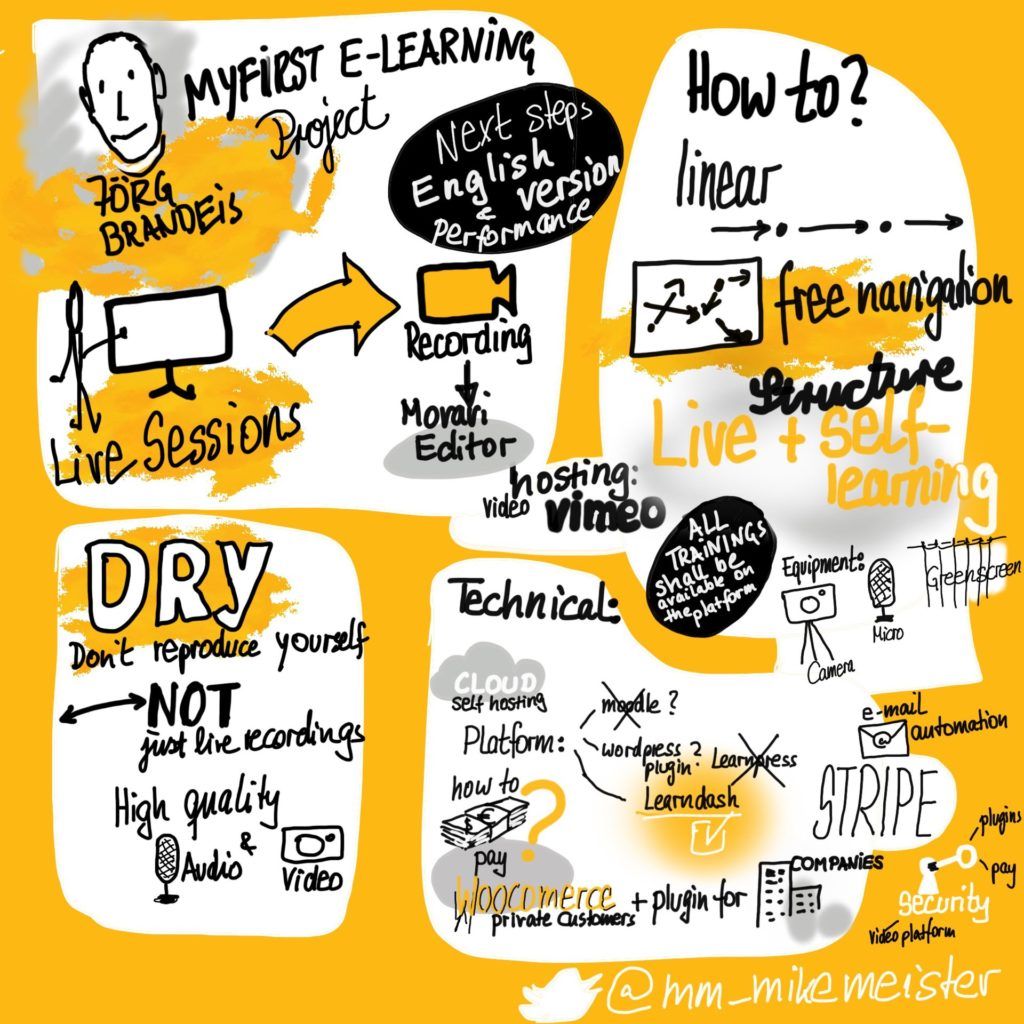 MY FIRST E-LEARNING
Project
JÖRG
BRANDEIS
Next steps
English
version
&
Performance
Recording
Movavi
Editor
Live Sessions
hosting:
video vimeo
How to?
linear
free navigation
structure
Live + self-
learning
ALL
TRAININGS
shall be
available on
the platform
Equipment:
Camera
Micro
Greenscreen
DRY
Don't reproduce yourself
NOT
just live recordings
High quality
Audio
&
Video
Technical:
CLOUD
self hosting
Platform:
moodle ?
wordpress ?
plugin: Learnpress
Learndash
how to
$ €
?
pay
Woocomerce
private customers
+ plugin for
COMPANIES
e-mail
@ automation
STRIPE
plugins
pay
Security
video platform
@mm_mikemeister